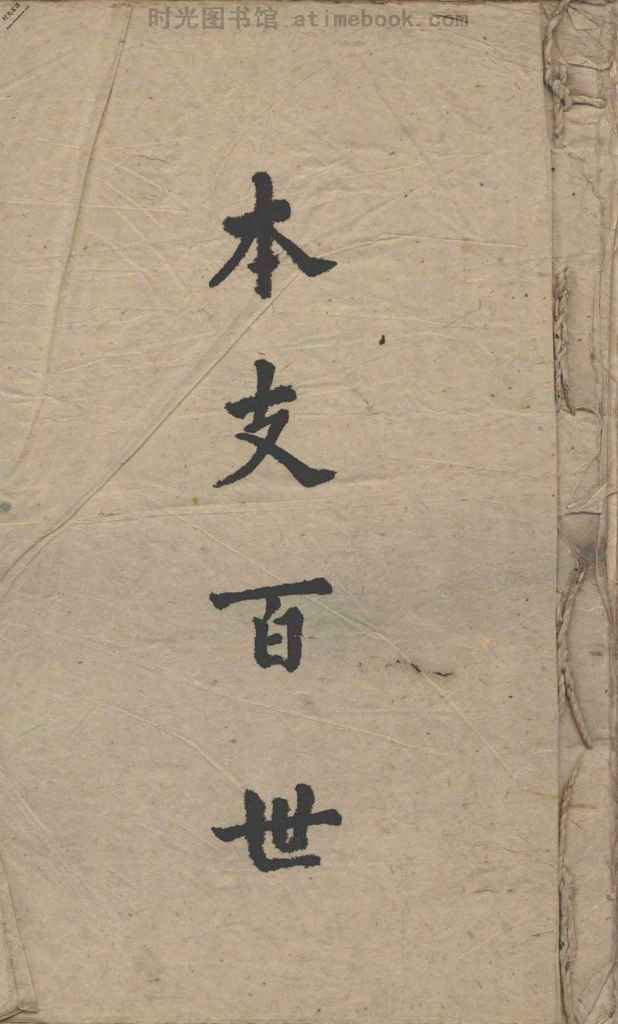 时光图书馆 atimebook.com
本支百世